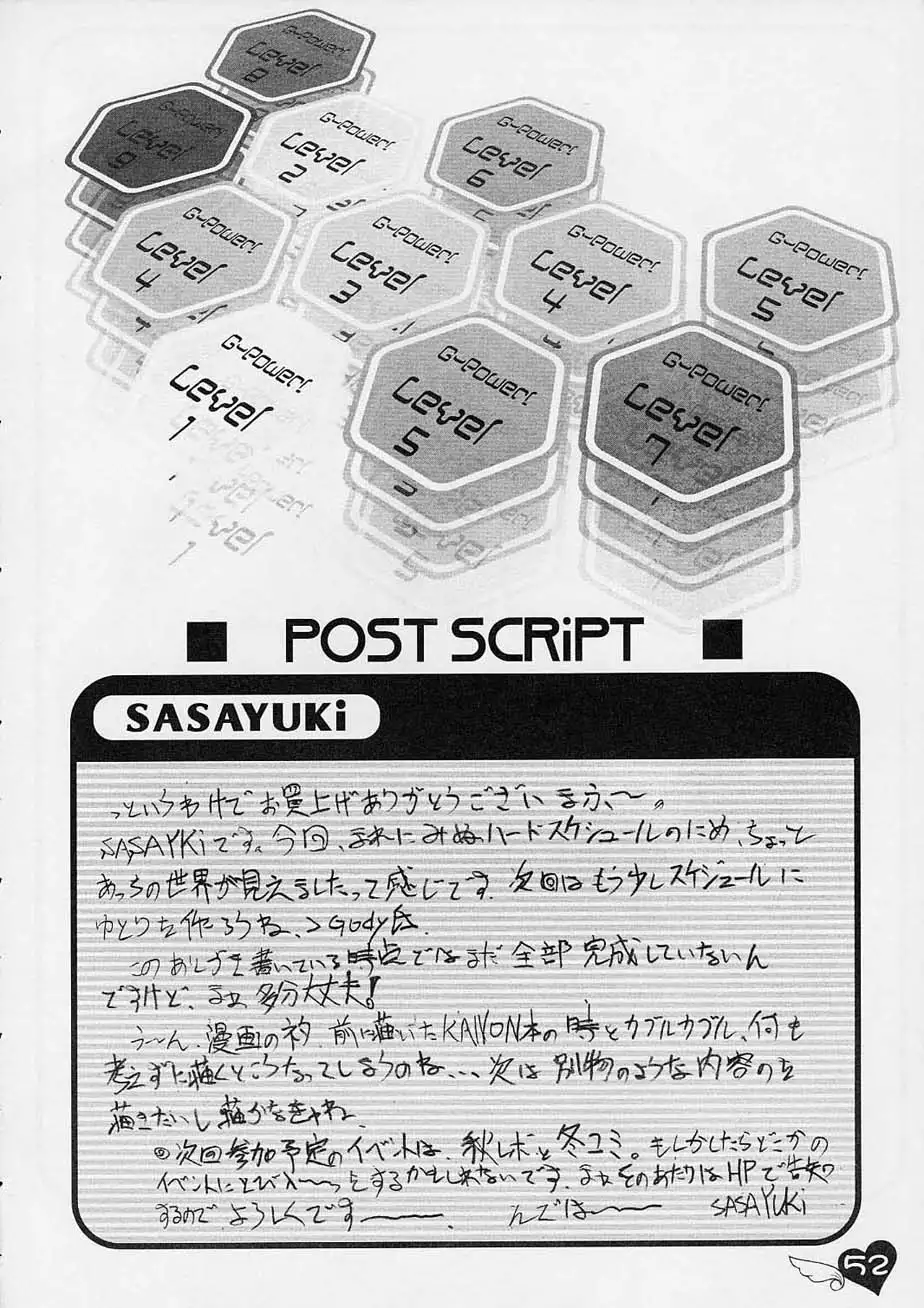 G-Power!
Level
8
G-Power!
Level
9
G-Power!
Level
2
G-Power!
Level
6
G-Power!
Level
4
G-Power!
Level
3
G-Power!
Level
4
G-Power!
Level
5
G-Power!
Level
1
G-Power!
Level
5
G-Power!
Level
7
■ POST SCRiPT ■
SASAYUKi
っというわけでお買上げありがとうございまふ、〜。
SASAYKiです。今回、まれにみぬハードスケジュールのため、ちょっと
あっちの世界が見えましたって感じです。次回はもう少しスケジュールに
ゆとりを作ろうね、>Gody氏.
このあとがを書いている時点ではまだ全部完成していないん
ですけど、まぁ多分大丈夫!
う〜ん、漫画のネタ、前に描いたKANON本の時とカブルカブル、何も
考えずに描くとこうなってしまうのね、、、次は別物のような内容のを
描きたいし描かなきゃね.
◎次回参加予定のイベントは、秋レボと冬コミ。もしかしたらどこかの
イベントにとび入〜っとするかもしれないです、まぁそのあたりはHPで告知
するので よろしくです――. んでは〜― SASAYUKi
52